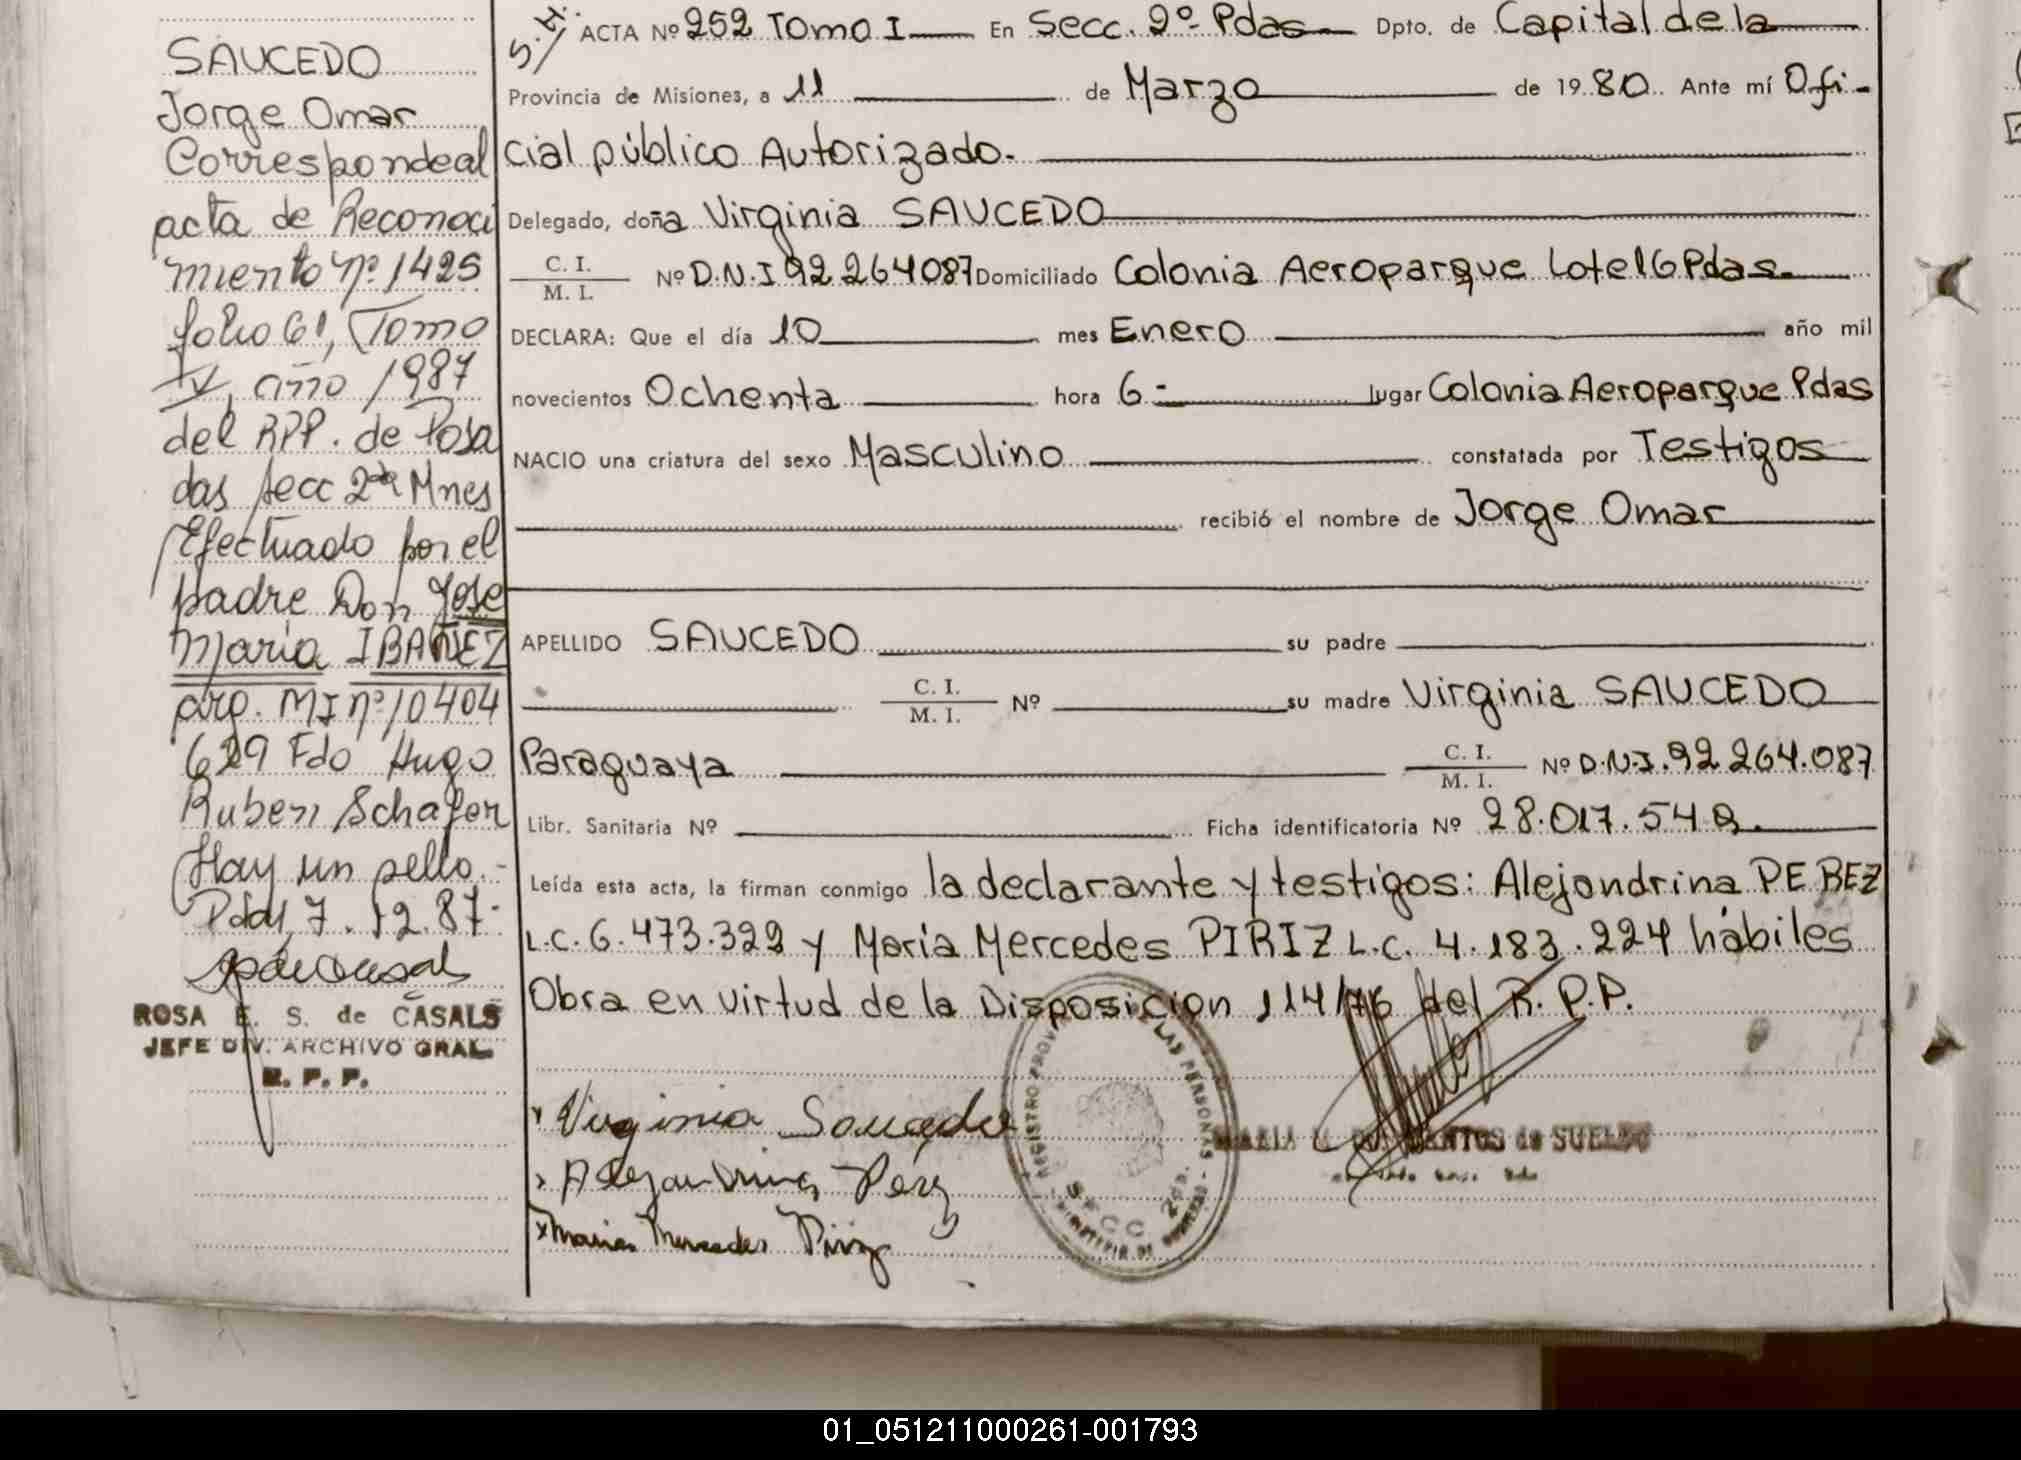 SAUCEDO
Jorge Omar
Corresponde al
acta de Reconoci
miento Nº 1425
folio 61, Tomo
IV, año 1987
del RPP. de Posa
das secc 2da Mnes
Efectuado por el
padre Don Jose
Maria IBAÑEZ
arg. MI nº 10404
629 Fdo Hugo
Ruben Schafer
Hay un sello.-
Pdas, 7.12.87-
ROSA E. S. de CASALS
JEFE DIV. ARCHIVO GRAL.
R. P. P.
S.H.
ACTA Nº 252 Tomo I En Secc. 2º Pdas Dpto. de Capital de la
Provincia de Misiones, a 11 de Marzo de 1980 Ante mí Ofi-
cial público Autorizado.
Delegado, doña Virginia SAUCEDO
C. I. / M. I. Nº D.N.I 92 264087 Domiciliado Colonia Aeroparque Lote 16 Pdas.
DECLARA: Que el día 10 mes Enero año mil
novecientos Ochenta hora 6- lugar Colonia Aeroparque Pdas
NACIO una criatura del sexo Masculino constatada por Testigos
recibió el nombre de Jorge Omar
APELLIDO SAUCEDO su padre
C. I. / M. I. Nº su madre Virginia SAUCEDO
Paraguaya C. I. / M. I. Nº D.N.I. 92 264.087
Libr. Sanitaria Nº Ficha identificatoria Nº 28.017.542.
Leída esta acta, la firman conmigo la declarante y testigos: Alejandrina PEREZ
L.C. 6.473.322 y María Mercedes PIRIZ L.C. 4.183.224 hábiles
Obra en virtud de la Disposicion 114/76 del R.P.P.
Virginia Saucedo
Alejandrina Perez
Maria Mercedes Piriz
REGISTRO PERSONAS
SECC 2da.
de SUELDO
01_051211000261-001793